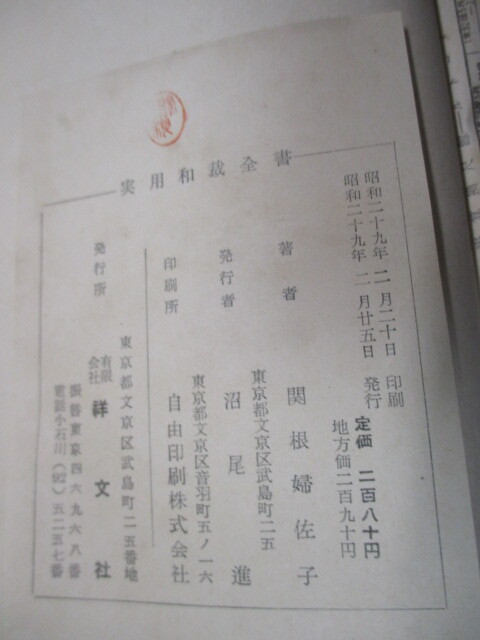 実用和裁全書
昭和二十九年 二 月二十日 印刷
昭和二十九年 二 月廿五日 発行
定価 二百八十円
地方価二百九十円
著者 関根婦佐子
東京都文京区武島町二五
発行者 沼尾進
東京都文京区音羽町五ノ一六
印刷所 自由印刷株式会社
東京都文京区武島町二五番地
発行所 有限会社 祥文社
振替東京四六九六八番
電話小石川(92)五二五七番